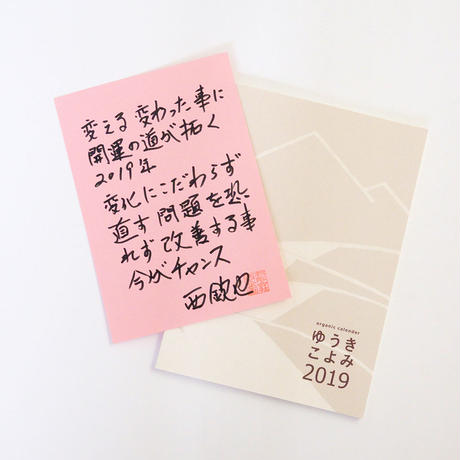 変える変わった事に
開運の道が拓く
2019年
変化にこだわらず
直す問題を恐
れず改善する事
今がチャンス
西鋭也
organic calender
ゆうき
こよみ
2019